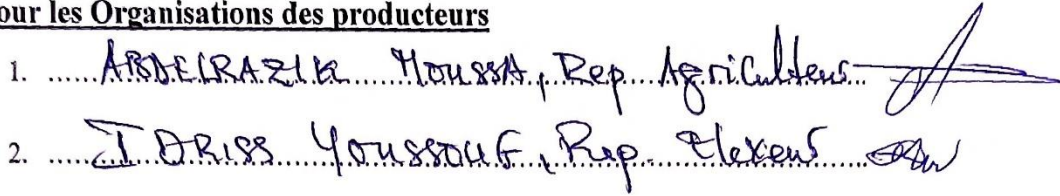 our les Organisations des producteurs
1. ABDELRAZIK Moussa, Rep Agriculteur
2. IDRISS Youssouf, Rep. Eleveur